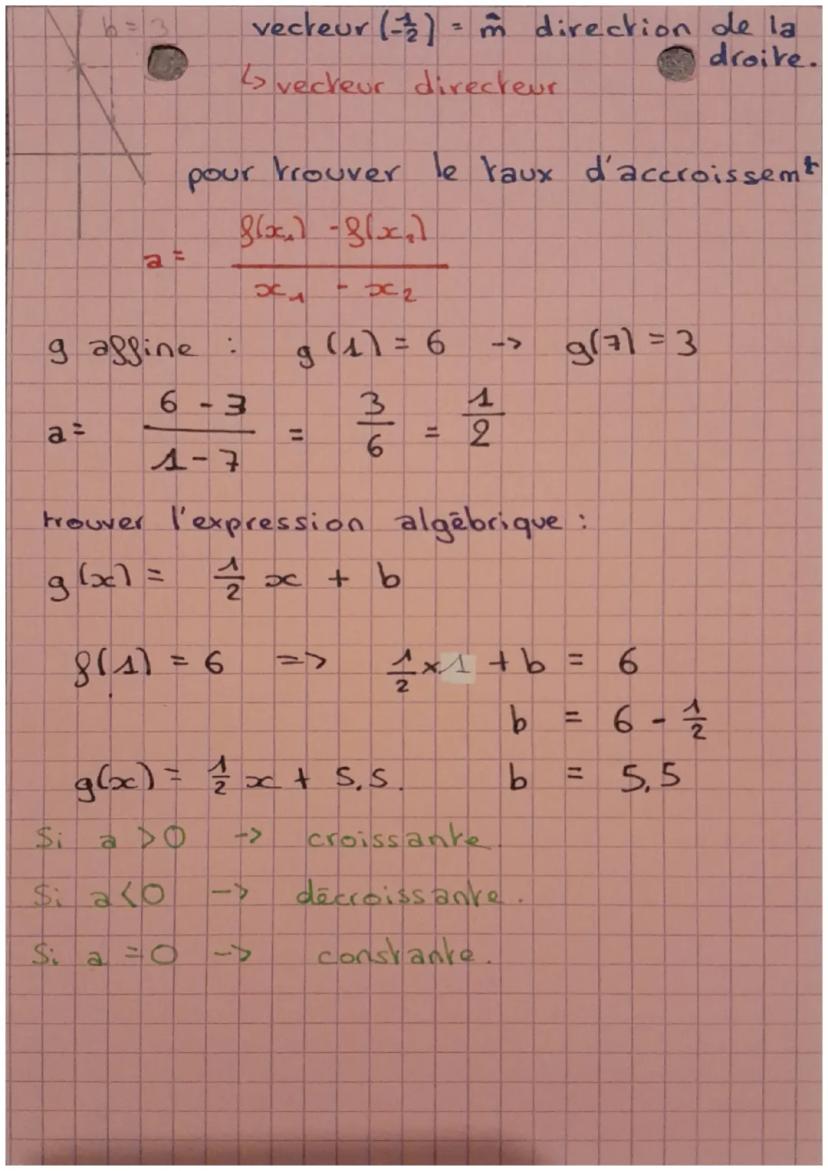 b = 3
vecteur (1/-2) = m̂ direction de la
droite.
↳ vecteur directeur
pour trouver le taux d'accroissemt
a = (f(x₁) - f(x₂)) / (x₁ - x₂)
g affine : g(1) = 6 -> g(7) = 3
a = (6 - 3) / (1 - 7) = 3/6 = 1/2
trouver l'expression algébrique :
g(x) = 1/2 x + b
f(1) = 6 => 1/2 × 1 + b = 6
b = 6 - 1/2
g(x) = 1/2 x + 5,5. b = 5,5
Si a > 0 -> croissante.
Si a < 0 -> décroissante.
Si a = 0 -> constante.